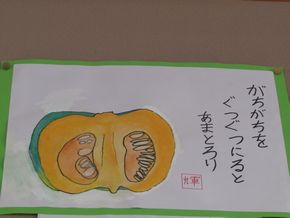 がちがちを
ぐつぐつにると
あまとろり
輝